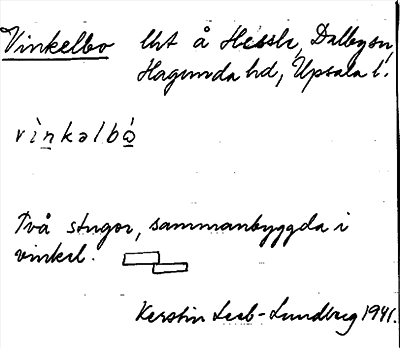 Vinkelbo lht å Hässle, Dalby sn,
Hagunda hd, Upsala l.
vìn̲kəlbώ̲
Två stugor, sammanbyggda i
vinkel.
Kerstin Leeb-Lundberg 1941.